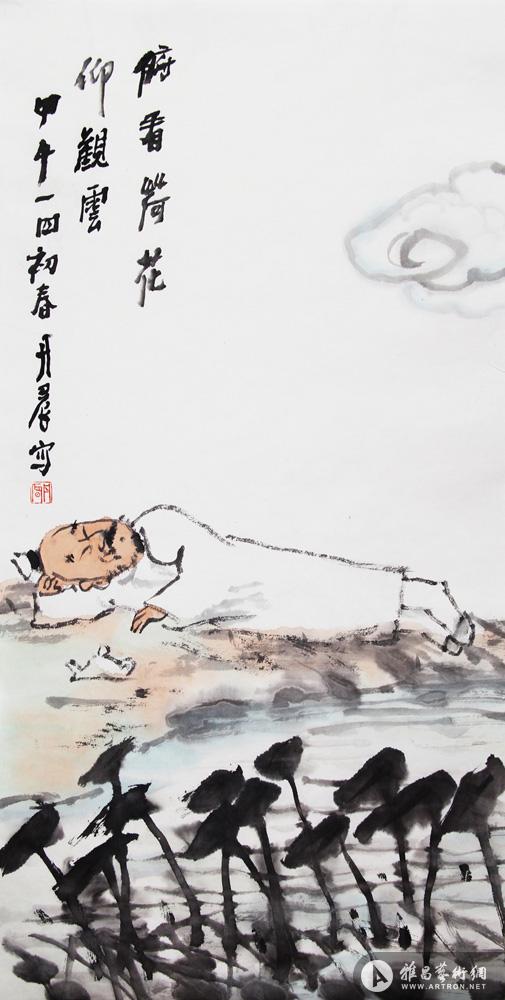 俯看荷花
仰觀雲
甲午一四初春月晨写
雅昌藝術網
WWW.ARTRON.NET